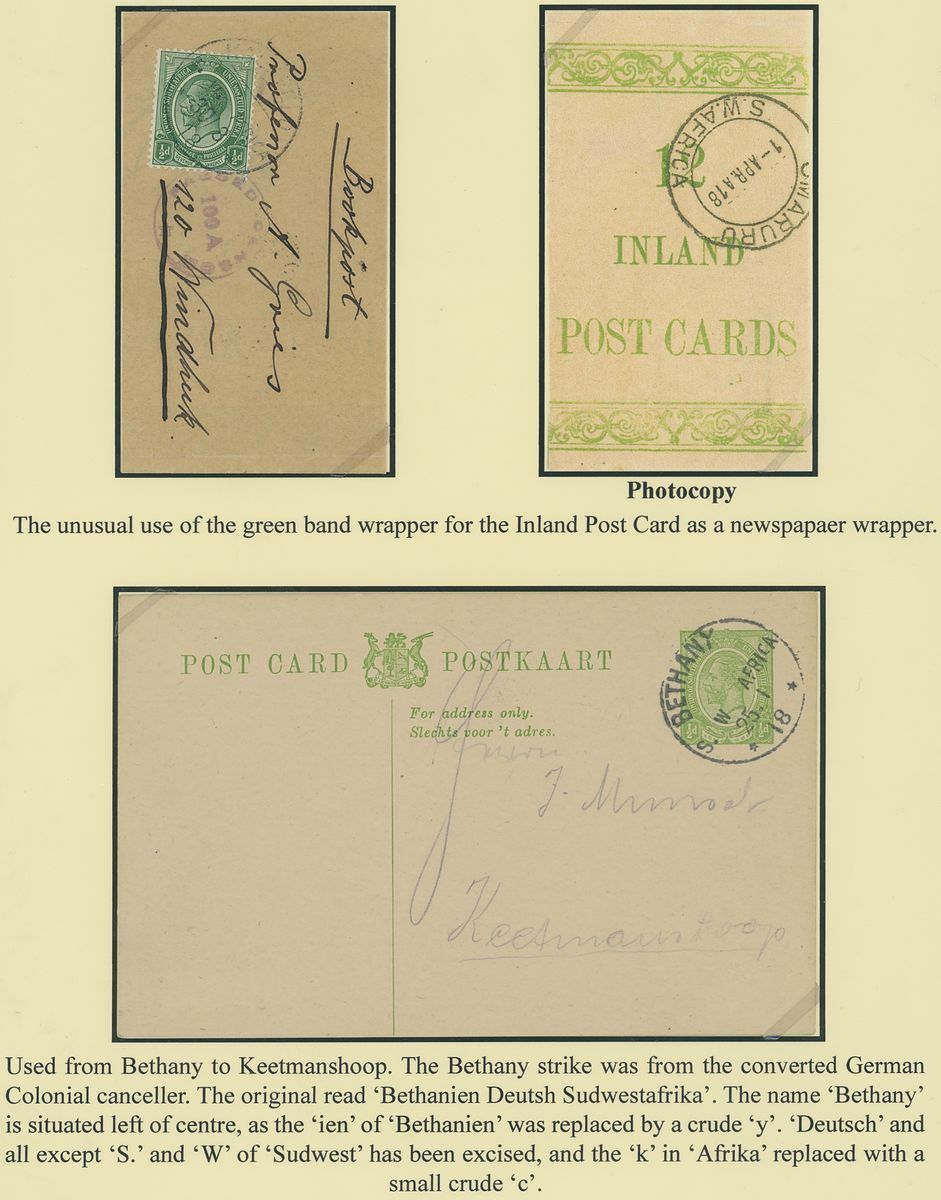 Bookpost
Professor A. Gries
120 Windhuk.
100 A
UNION OF SOUTH AFRICA UNIE VAN ZUID AFRIKA
½d ½d
12
INLAND
POST CARDS
OMARURU
S.W.AFRICA
1-APR.A18
Photocopy
The unusual use of the green band wrapper for the Inland Post Card as a newspapaer wrapper.
POST CARD POSTKAART
For address only.
Slechts voor 't adres.
BETHANY
S. W AFRICA
25. 1
18
½d
Herrn
J.
Keetmanshoop
Used from Bethany to Keetmanshoop. The Bethany strike was from the converted German
Colonial canceller. The original read ‘Bethanien Deutsh Sudwestafrika’. The name ‘Bethany’
is situated left of centre, as the ‘ien’ of ‘Bethanien’ was replaced by a crude ‘y’. ‘Deutsch’ and
all except ‘S.’ and ‘W’ of ‘Sudwest’ has been excised, and the ‘k’ in ‘Afrika’ replaced with a
small crude ‘c’.